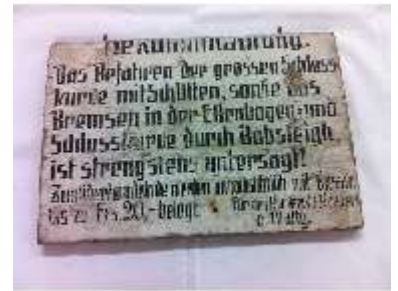 Bekanntmachung.
Das Befahren der grossen Schluss
kurve mit Schlitten, sowie das
Bremsen in der Ellenbogen- und
Schlusskurve durch Bobsleigh,
ist strengstens untersagt!
Zuwiderhandelnde werden
bis zu Frs. 20.- belegt.